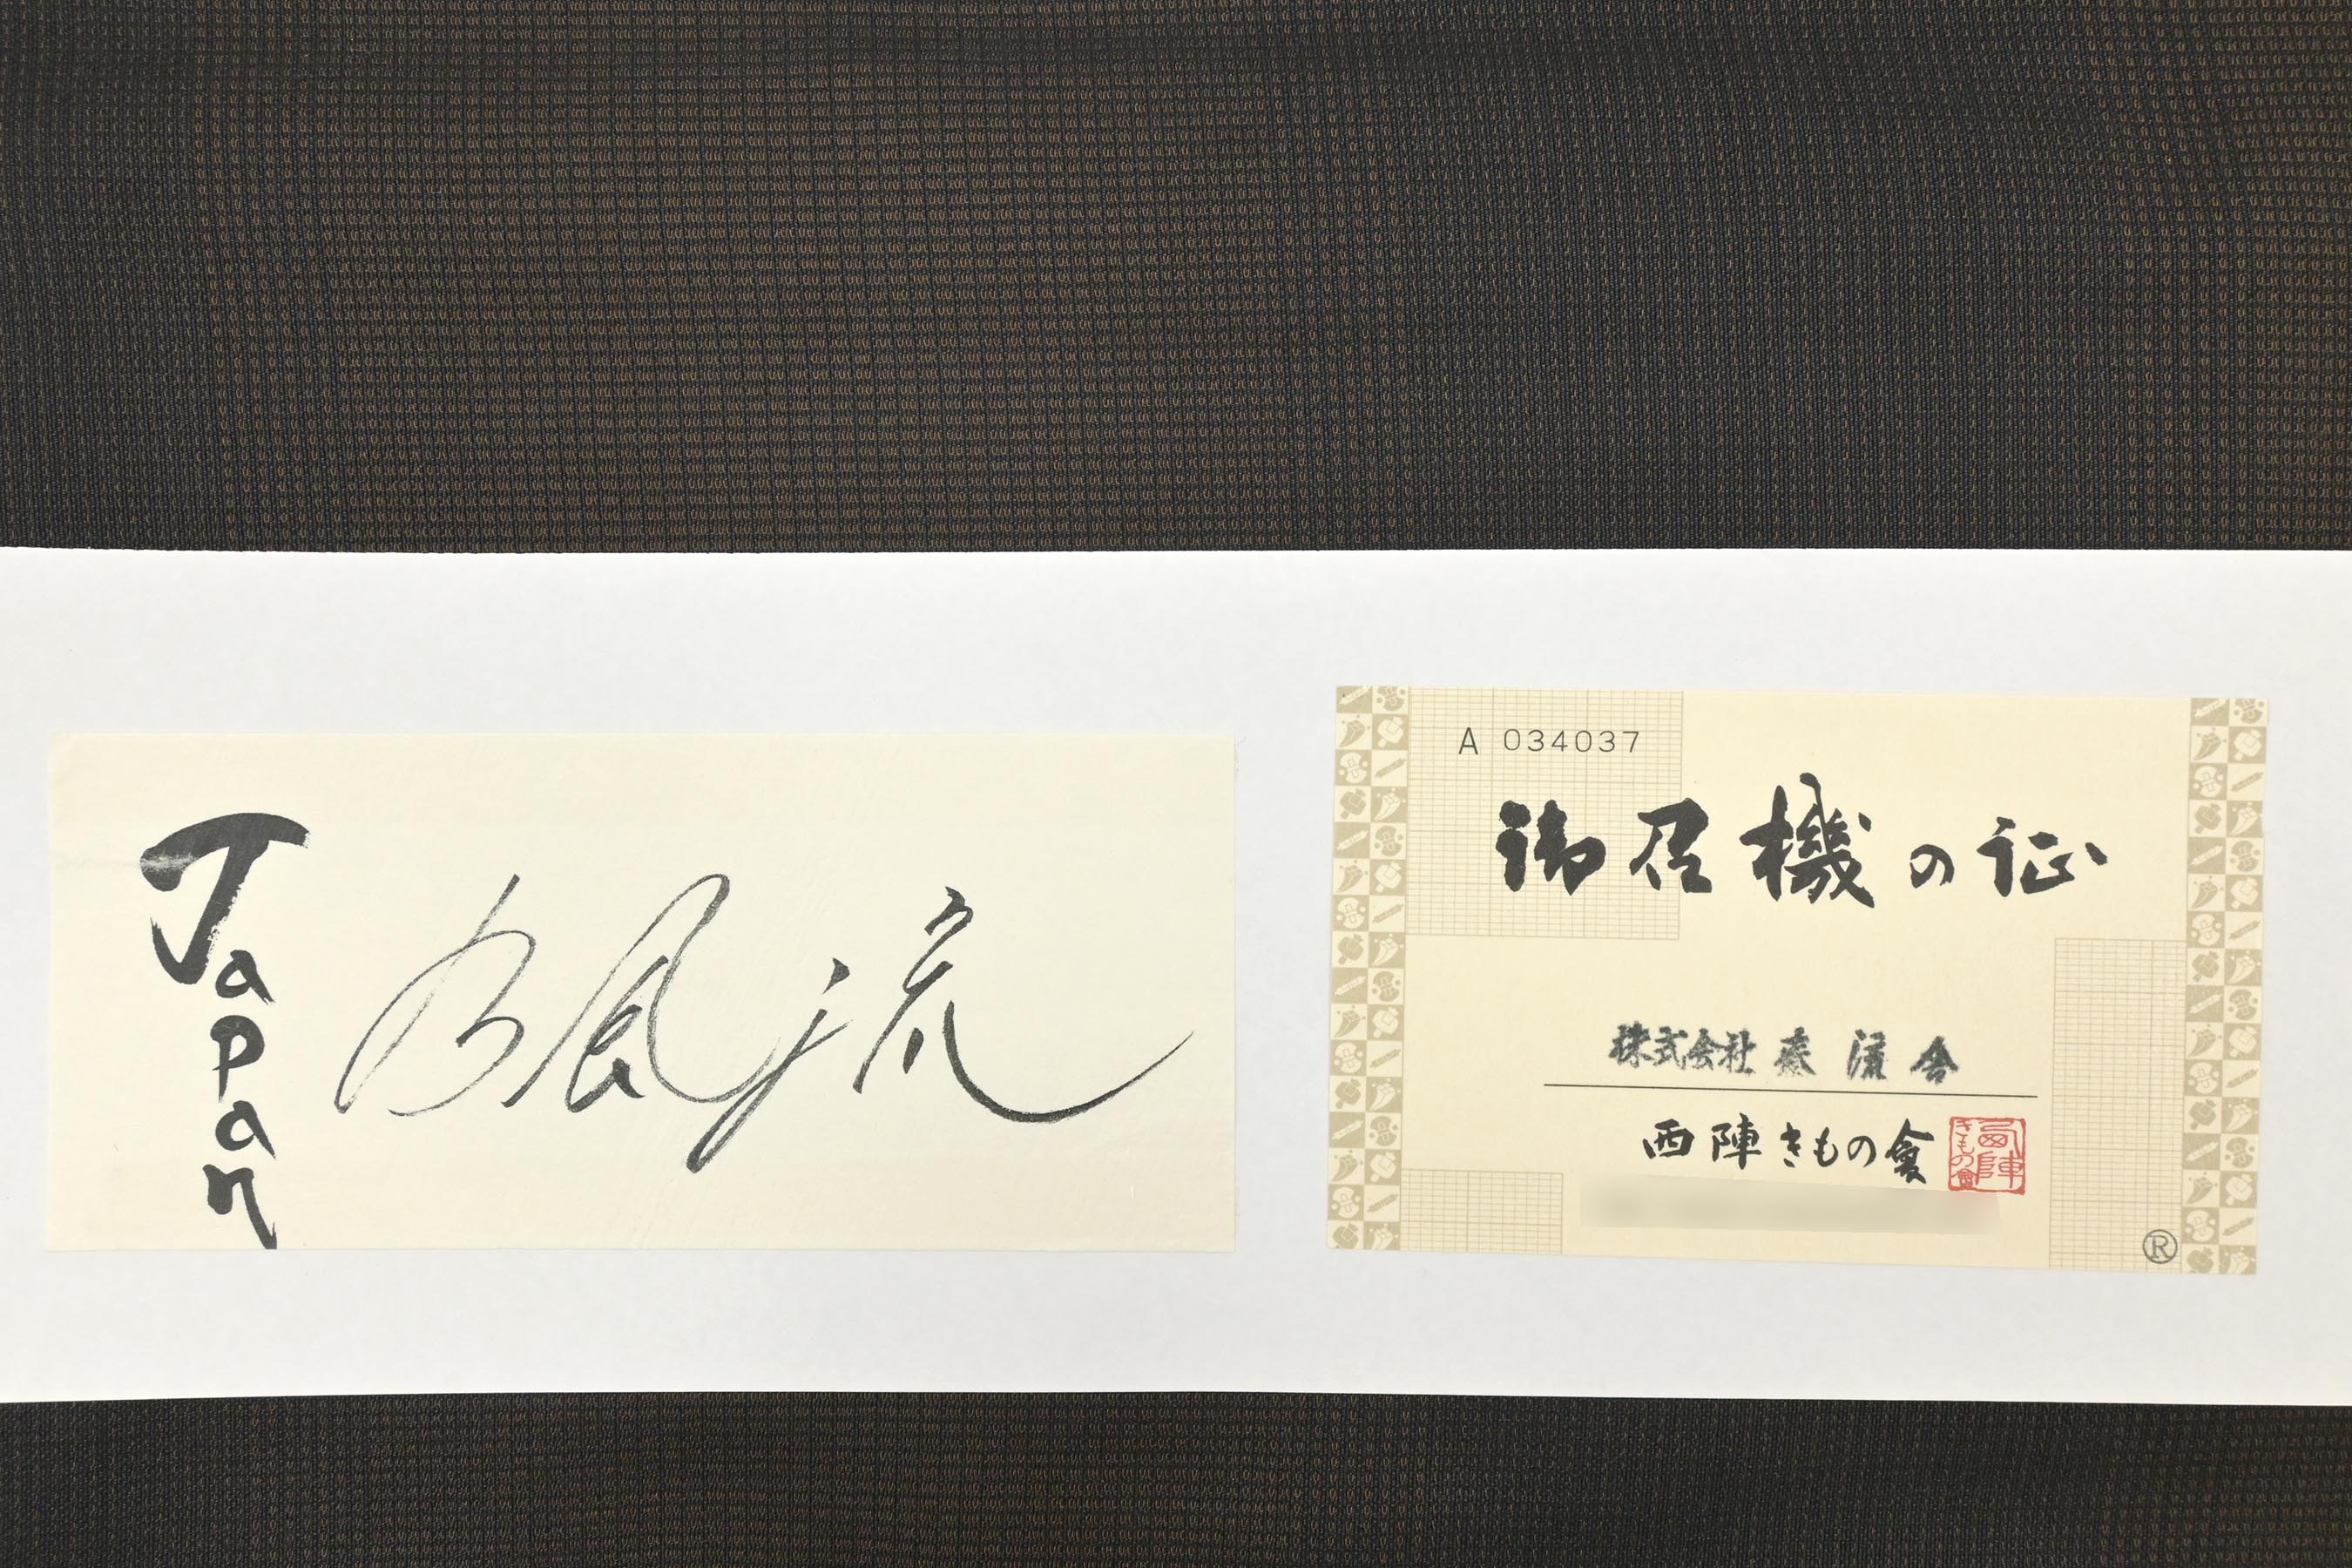 Japan
乃風流
A 034037
御召機の証
株式会社 秦流舎
西陣きもの會
西陣
きもの會
®